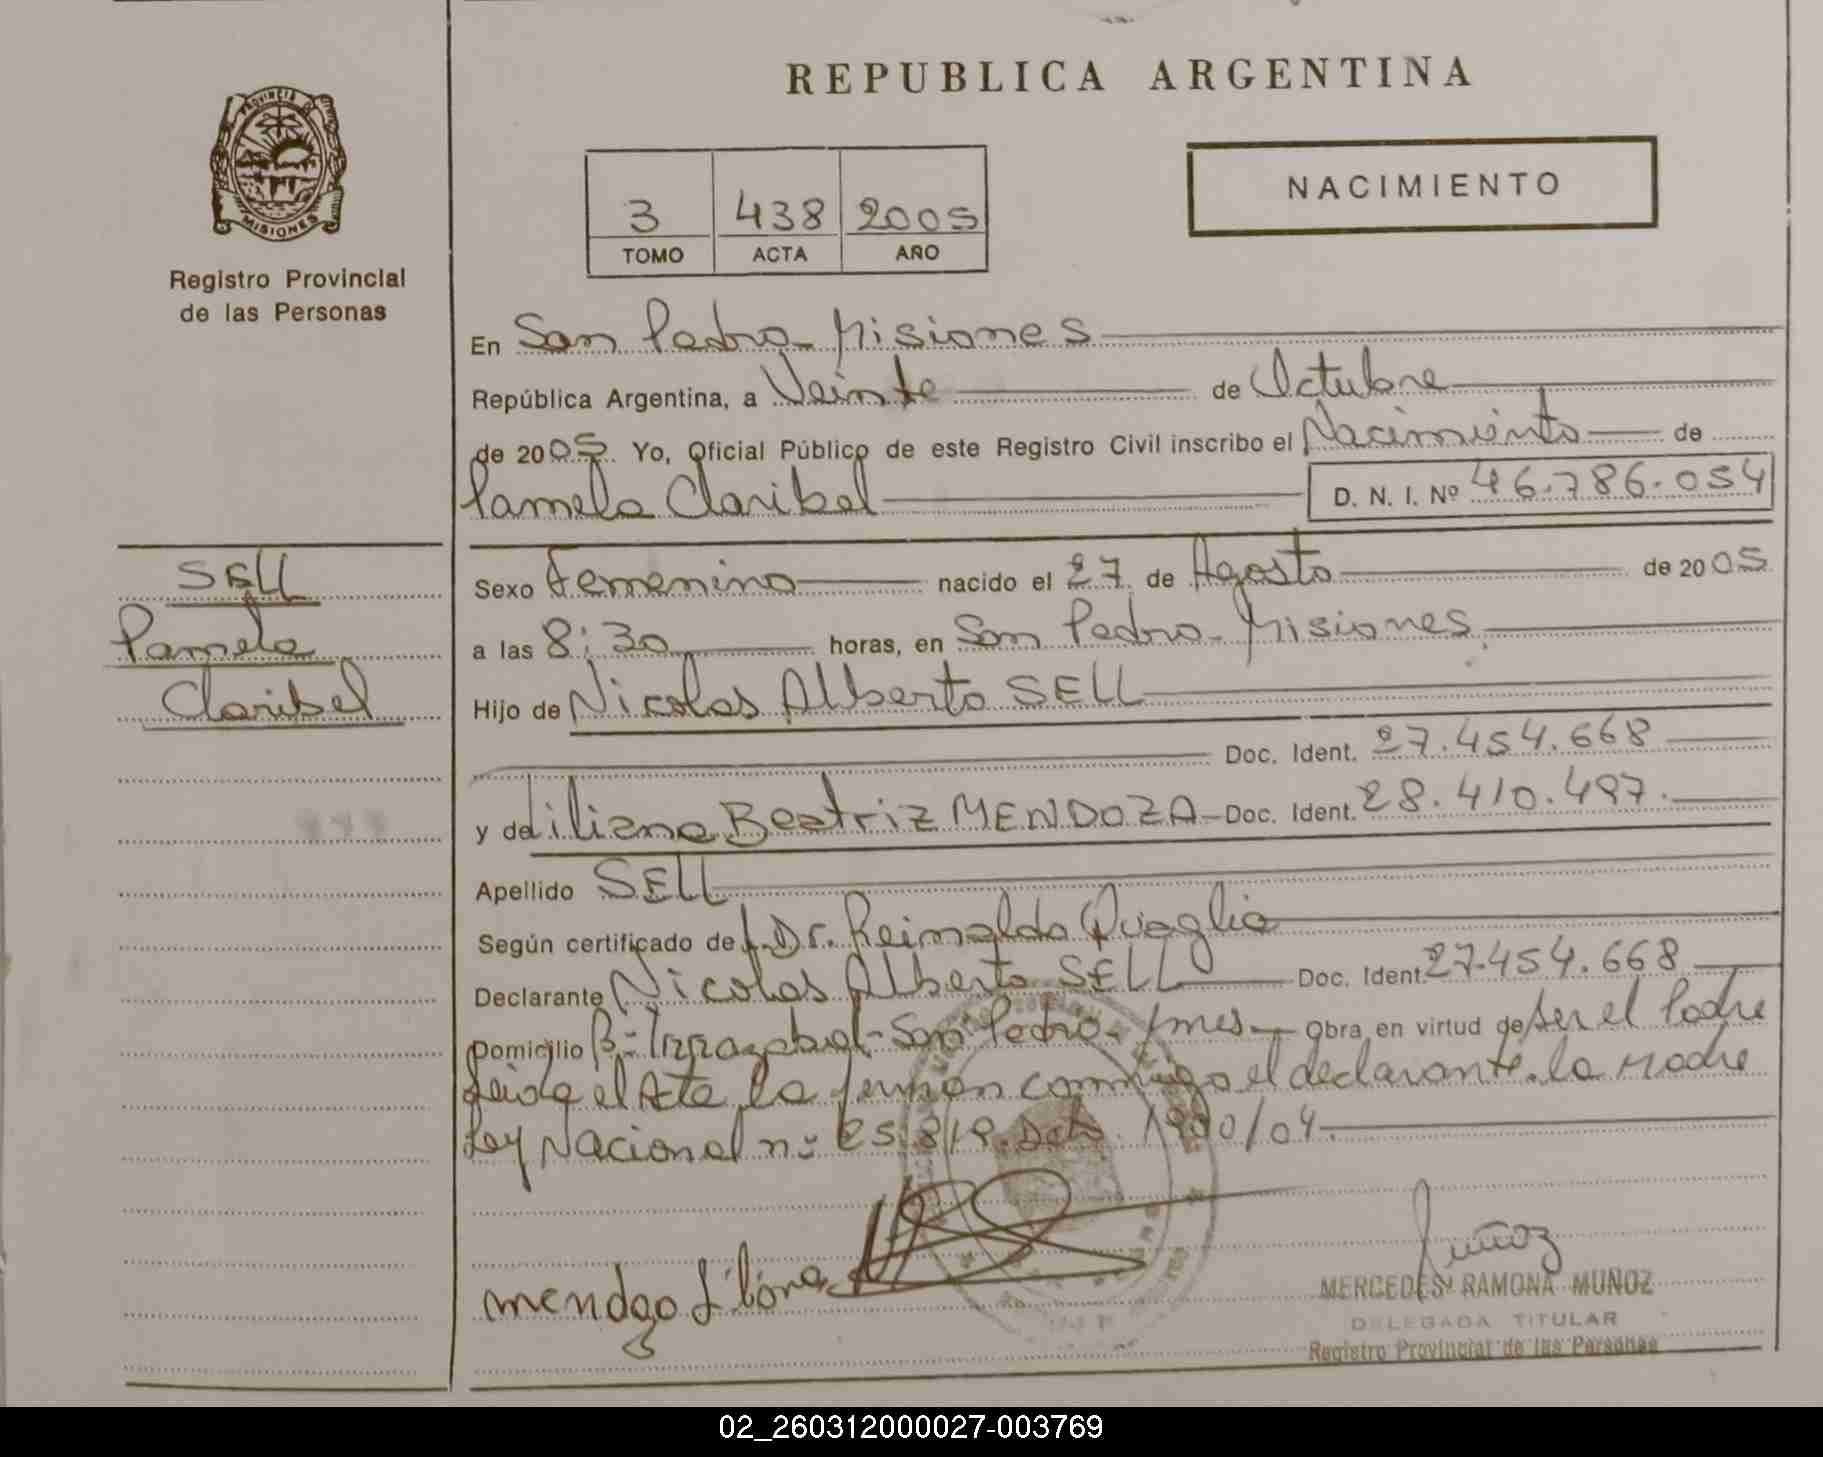 REPUBLICA ARGENTINA
PROVINCIA DE
MISIONES
Registro Provincial
de las Personas
NACIMIENTO
3 438 2005
TOMO ACTA AÑO
En San Pedro - Misiones
República Argentina, a Veinte de Octubre
de 2005 Yo, Oficial Público de este Registro Civil inscribo el Nacimiento de
Pamela Claribel D. N. I. Nº 46.786.054
SELL
Pamela
Claribel
Sexo Femenino nacido el 27 de Agosto de 2005
a las 8:30 horas, en San Pedro - Misiones
Hijo de Nicolas Alberto SELL
Doc. Ident. 27.454.668
y de Liliana Beatriz MENDOZA Doc. Ident. 28.410.497.
Apellido SELL
Según certificado de Dr. Reinaldo Quaglia
Declarante Nicolas Alberto SELL Doc. Ident. 27.454.668
Domicilio Bº Irrazabal - San Pedro - Mnes. Obra en virtud de ser el Padre
Leida el Acta, la firman conmigo el declarante. la Madre
Ley Nacional nº 25.819. Dcto. 1900/04.
mendozo Liliana
Muñoz
MERCEDES RAMONA MUÑOZ
DELEGADA TITULAR
Registro Provincial de las Personas
02_260312000027-003769